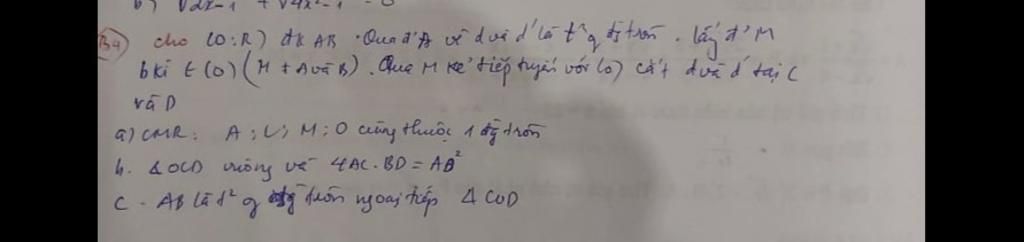 b) √2x-1 + √4x²-1 = 0
B4 cho (O;R) đk AB. Qua đ' A vẽ d và d' là t² g đg tròn. lấy đ' M
bkì ∈ (O) (M ≠ A và B). Qua M kẻ tiếp tuyến với (O) cắt d và d' tại C
và D
a) CMR: A; C; M; O cùng thuộc 1 đg tròn
b. ΔOCD vuông và 4AC.BD = AB²
c. AB là t² g đg tròn ngoại tiếp ΔCOD